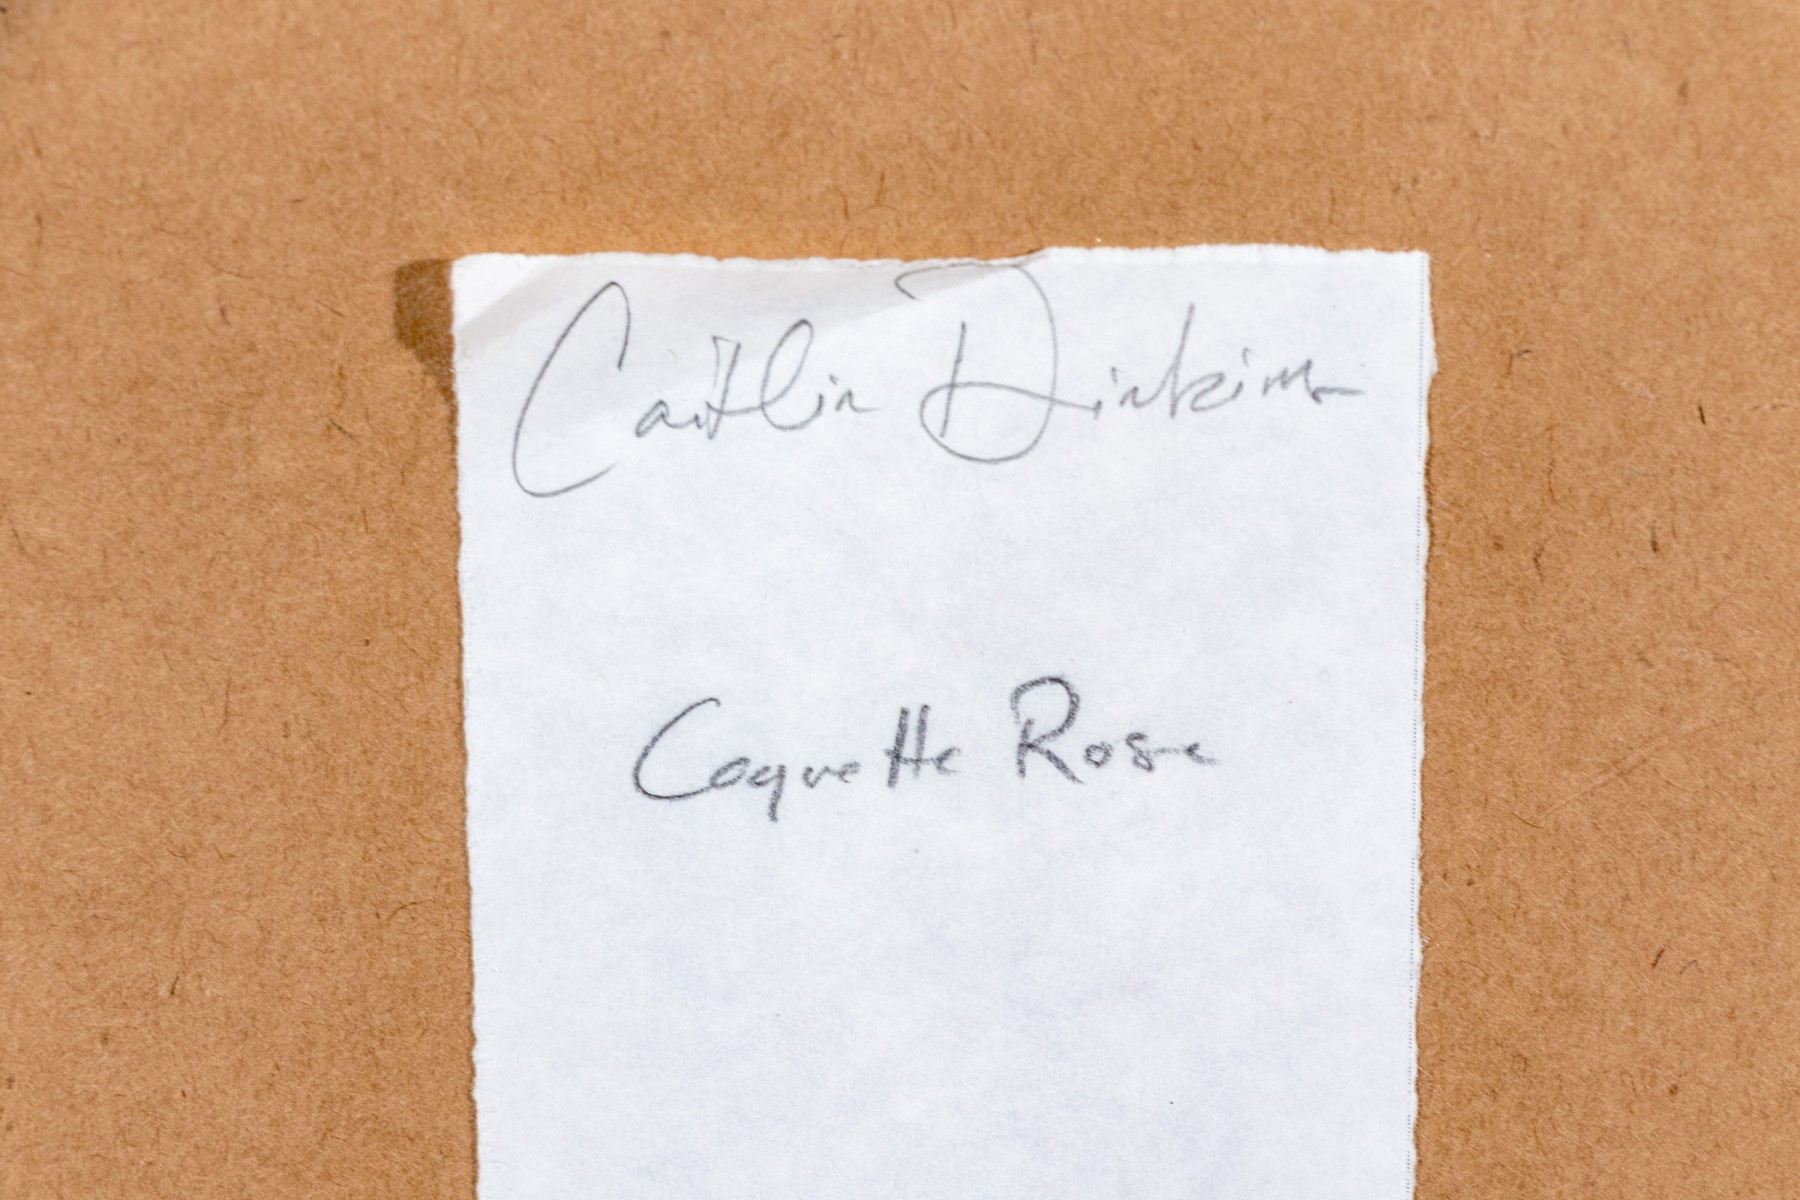 Caitlin Dinkins
Coquette Rose